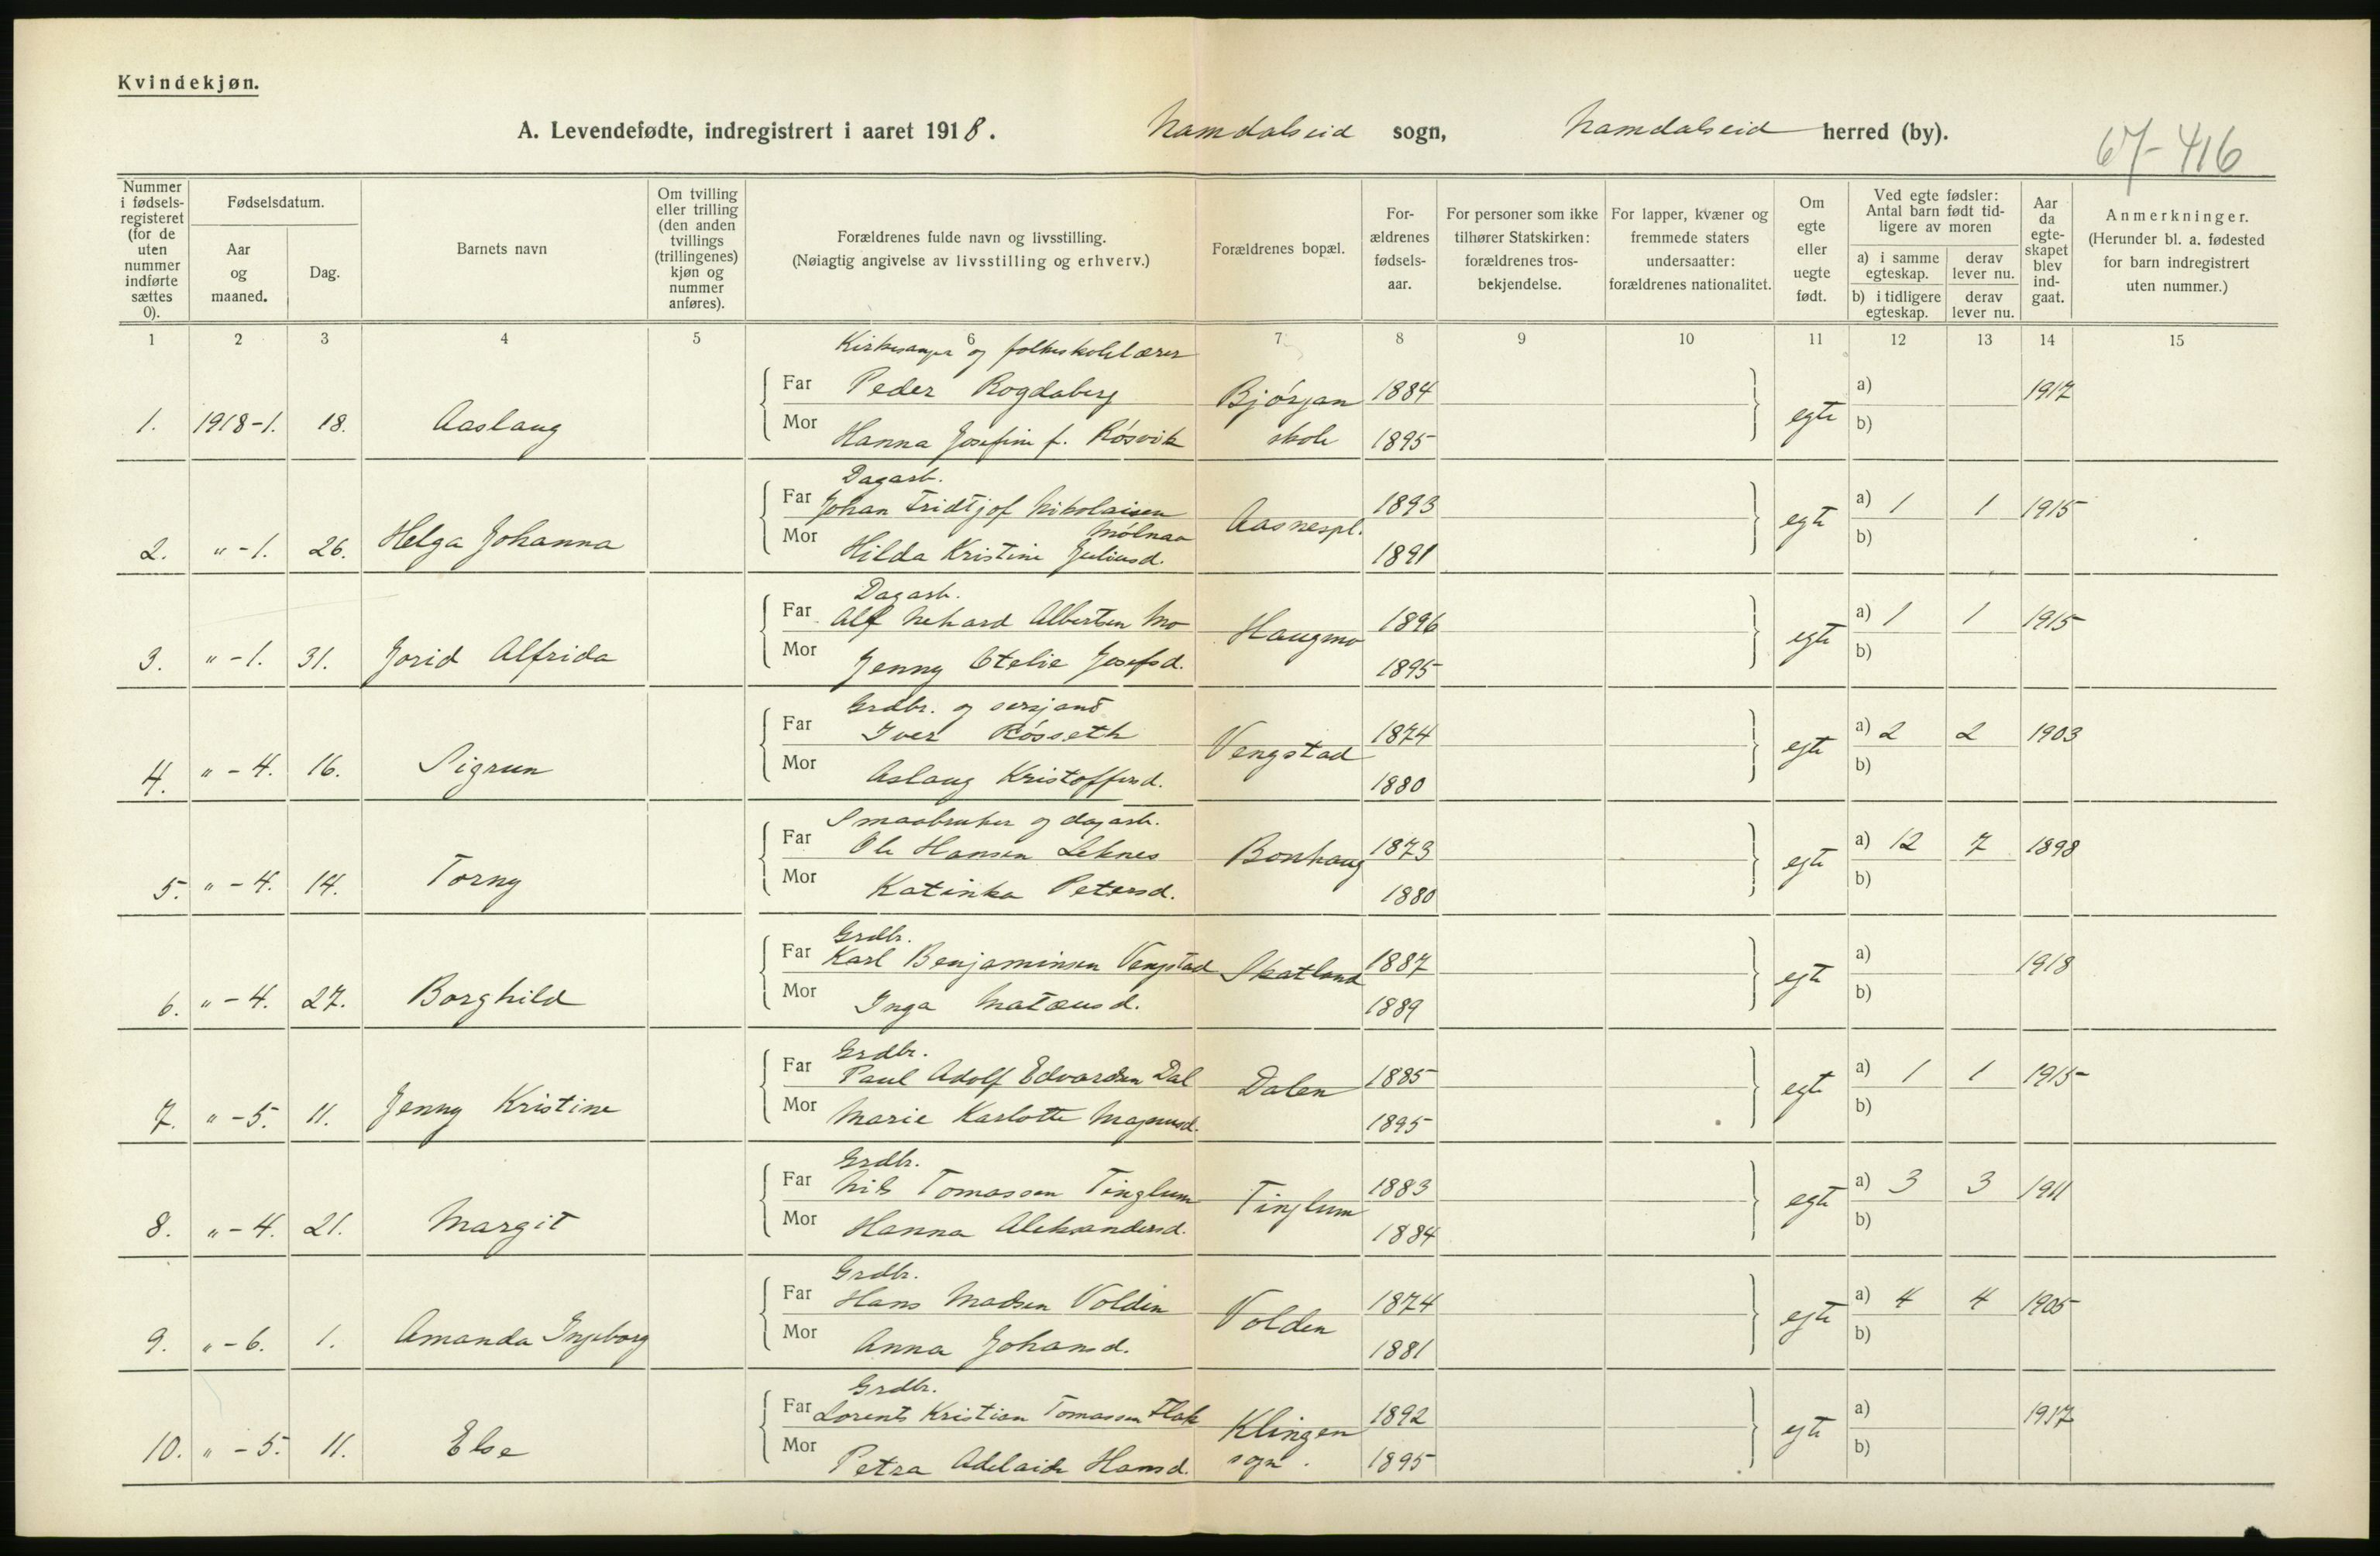 Kvindekjøn.
A. Levendefødte, indregistrert i aaret 1918. Namdalseid sogn, Namdalseid herred (by).
67-416
Nummer i fødsels-registeret (for de uten nummer indførte sættes 0).
Fødselsdatum.
Aar og maaned.
Dag.
Barnets navn
Om tvilling eller trilling (den anden tvillings (trillingenes) kjøn og nummer anføres).
Forældrenes fulde navn og livsstilling.
(Nøiagtig angivelse av livsstilling og erhverv.)
Forældrenes bopæl.
For-ældrenes fødsels-aar.
For personer som ikke tilhører Statskirken: forældrenes tros-bekjendelse.
For lapper, kvæner og fremmede staters undersaatter: forældrenes nationalitet.
Om egte eller uegte født.
Ved egte fødsler: Antal barn født tid-ligere av moren
a) i samme egteskap.
derav lever nu.
b) i tidligere egteskap.
derav lever nu.
Aar da egte-skapet blev ind-gaat.
Anmerkninger.
(Herunder bl. a. fødested for barn indregistrert uten nummer.)
1 2 3 4 5 6 7 8 9 10 11 12 13 14 15
Kirkesanger og folkeskolelærer
Far Peder Rogdaberg Bjørgan 1884 a) 1917
1. 1918-1. 18. Aaslaug egte b)
Mor Hanna Josefine f. Røsvik skole 1895
Dagarb.
Far Johan Fridtjof Nikolaisen 1893 a) 1 1 1915
Mølnaa Aasnespl.
2. "-1. 26. Helga Johanna egte b)
Mor Hilda Kristine Juliusd. 1891
Dagarb.
Far Alf Nehard Albertsen Mo Haugmo 1896 a) 1 1 1915
3. "-1. 31. Jorid Alfrida egte b)
Mor Jenny Otelie Josefsd. 1895
Grdbr. og sersjant
Far Iver Røsseth Vengstad 1874 a) 2 2 1903
4. "-4. 16. Sigrun egte b)
Mor Aslaug Kristoffersd. 1880
Smaabruker og dagarb.
Far Ole Hansen Leknes Bonhaug 1873 a) 12 7 1898
5. "-4. 14. Torny egte b)
Mor Katinka Petersd. 1880
Grdbr.
Far Karl Benjaminsen Vengstad Skatland 1887 a) 1918
6. "-4. 27. Borghild egte b)
Mor Inga Matæusd. 1889
Grdbr.
Far Paul Adolf Edvardsen Dal Dalen 1885 a) 1 1 1915
7. "-5. 11. Jenny Kristine egte b)
Mor Marie Karlotte Magnusd. 1895
Grdbr.
Far Nils Tomassen Tinglum Tinglum 1883 a) 3 3 1911
8. "-4. 21. Margit egte b)
Mor Hanna Aleksandersd. 1884
Grdbr.
Far Hans Madsen Volden Volden 1874 a) 4 4 1905
9. "-6. 1. Amanda Ingeborg egte b)
Mor Anna Johansd. 1881
Grdbr.
Far Lorents Kristian Tomassen Flak Klingen 1892 a) 1917
10. "-5. 11. Else egte b)
Mor Petra Adelaide Hansd. sogn. 1895